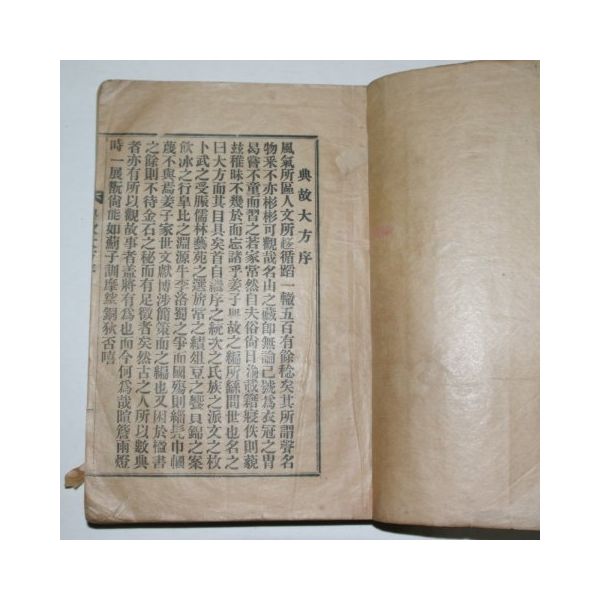 典故大方序
風氣所區人文所趍循蹈一轍五百有餘稔矣其所謂聲名
物釆不亦彬彬可觀哉名山之藏卽無論已號爲衣冠之冑
曷嘗不童而習之若家常然自夫俗尙日渝載籍寢佚則藐
玆稚昧不幾於面忘諸乎姜子典故之編所繇問世也名之
曰大方而其目具矣首自譏序之統次之氏族之派文之枚
卜武之受脤儒林藝苑之選旂常之績俎豆之饗貝錦之案
飮冰之行臯比之淵源牛李洛蜀之爭而國殤則緇髡巾幗
蔑不與焉姜子家世文獻博涉簡策而之編也又困於檀書
之餘則不待金石之秘而有足徵者矣然古之人所以數典
者亦有所以觀故事者盖將有爲也而今何爲哉暄簷雨燈
時一展翫尙能如薊子訓摩挲銅狄否嘻